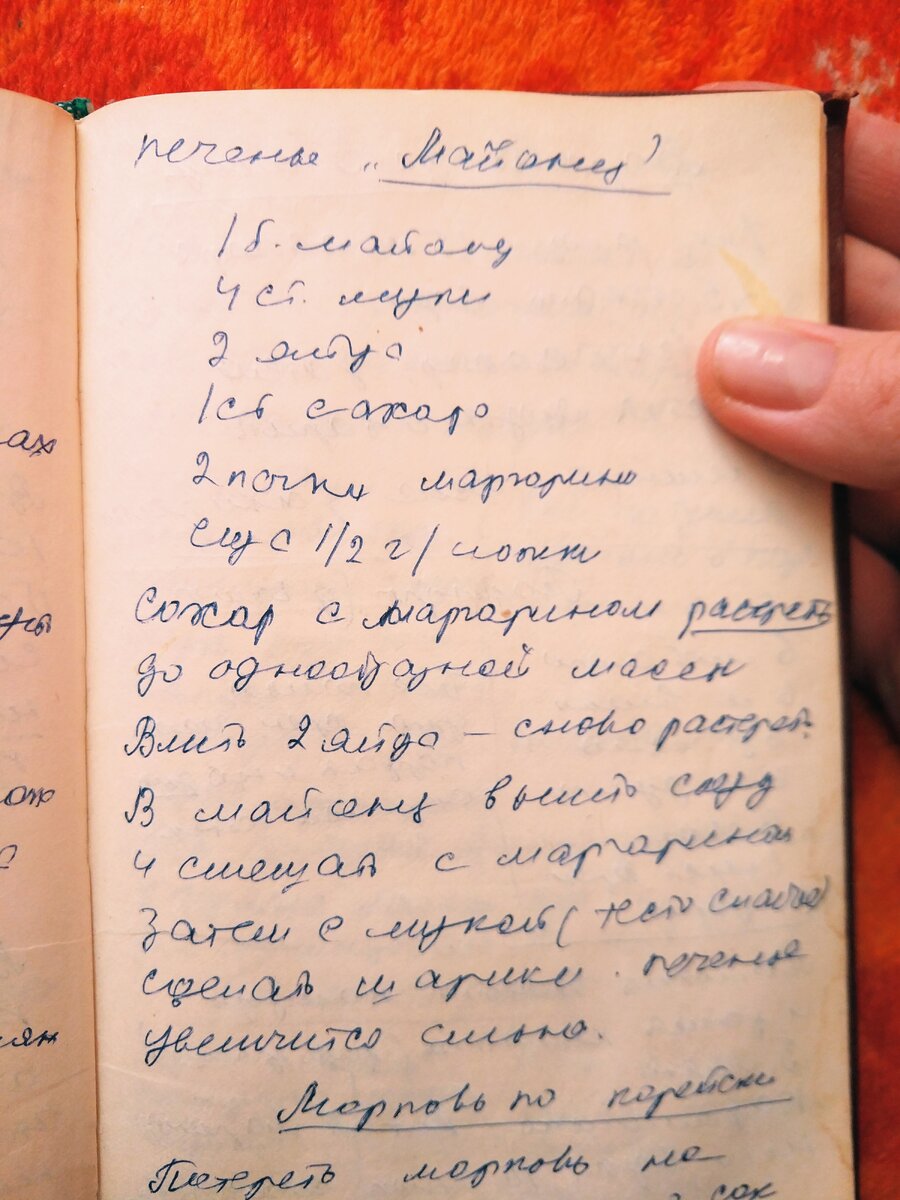 печенье „Майонез"
1 б. майонез
4 ст. муки
2 яйца
1 ст сахара
2 пачки маргарина
1/2 г/ ложки
ах
Сахар с маргарином растереть
до однообразной массы
Влить 2 яйца – снова растереть.
В майонез всыпать соду
ож
и смешать с маргарином
Затем с мукой (тесто слабое)
сделать шарики. печенье
увеличится сильно.
Морковь по корейски
Потереть морковь на
сок